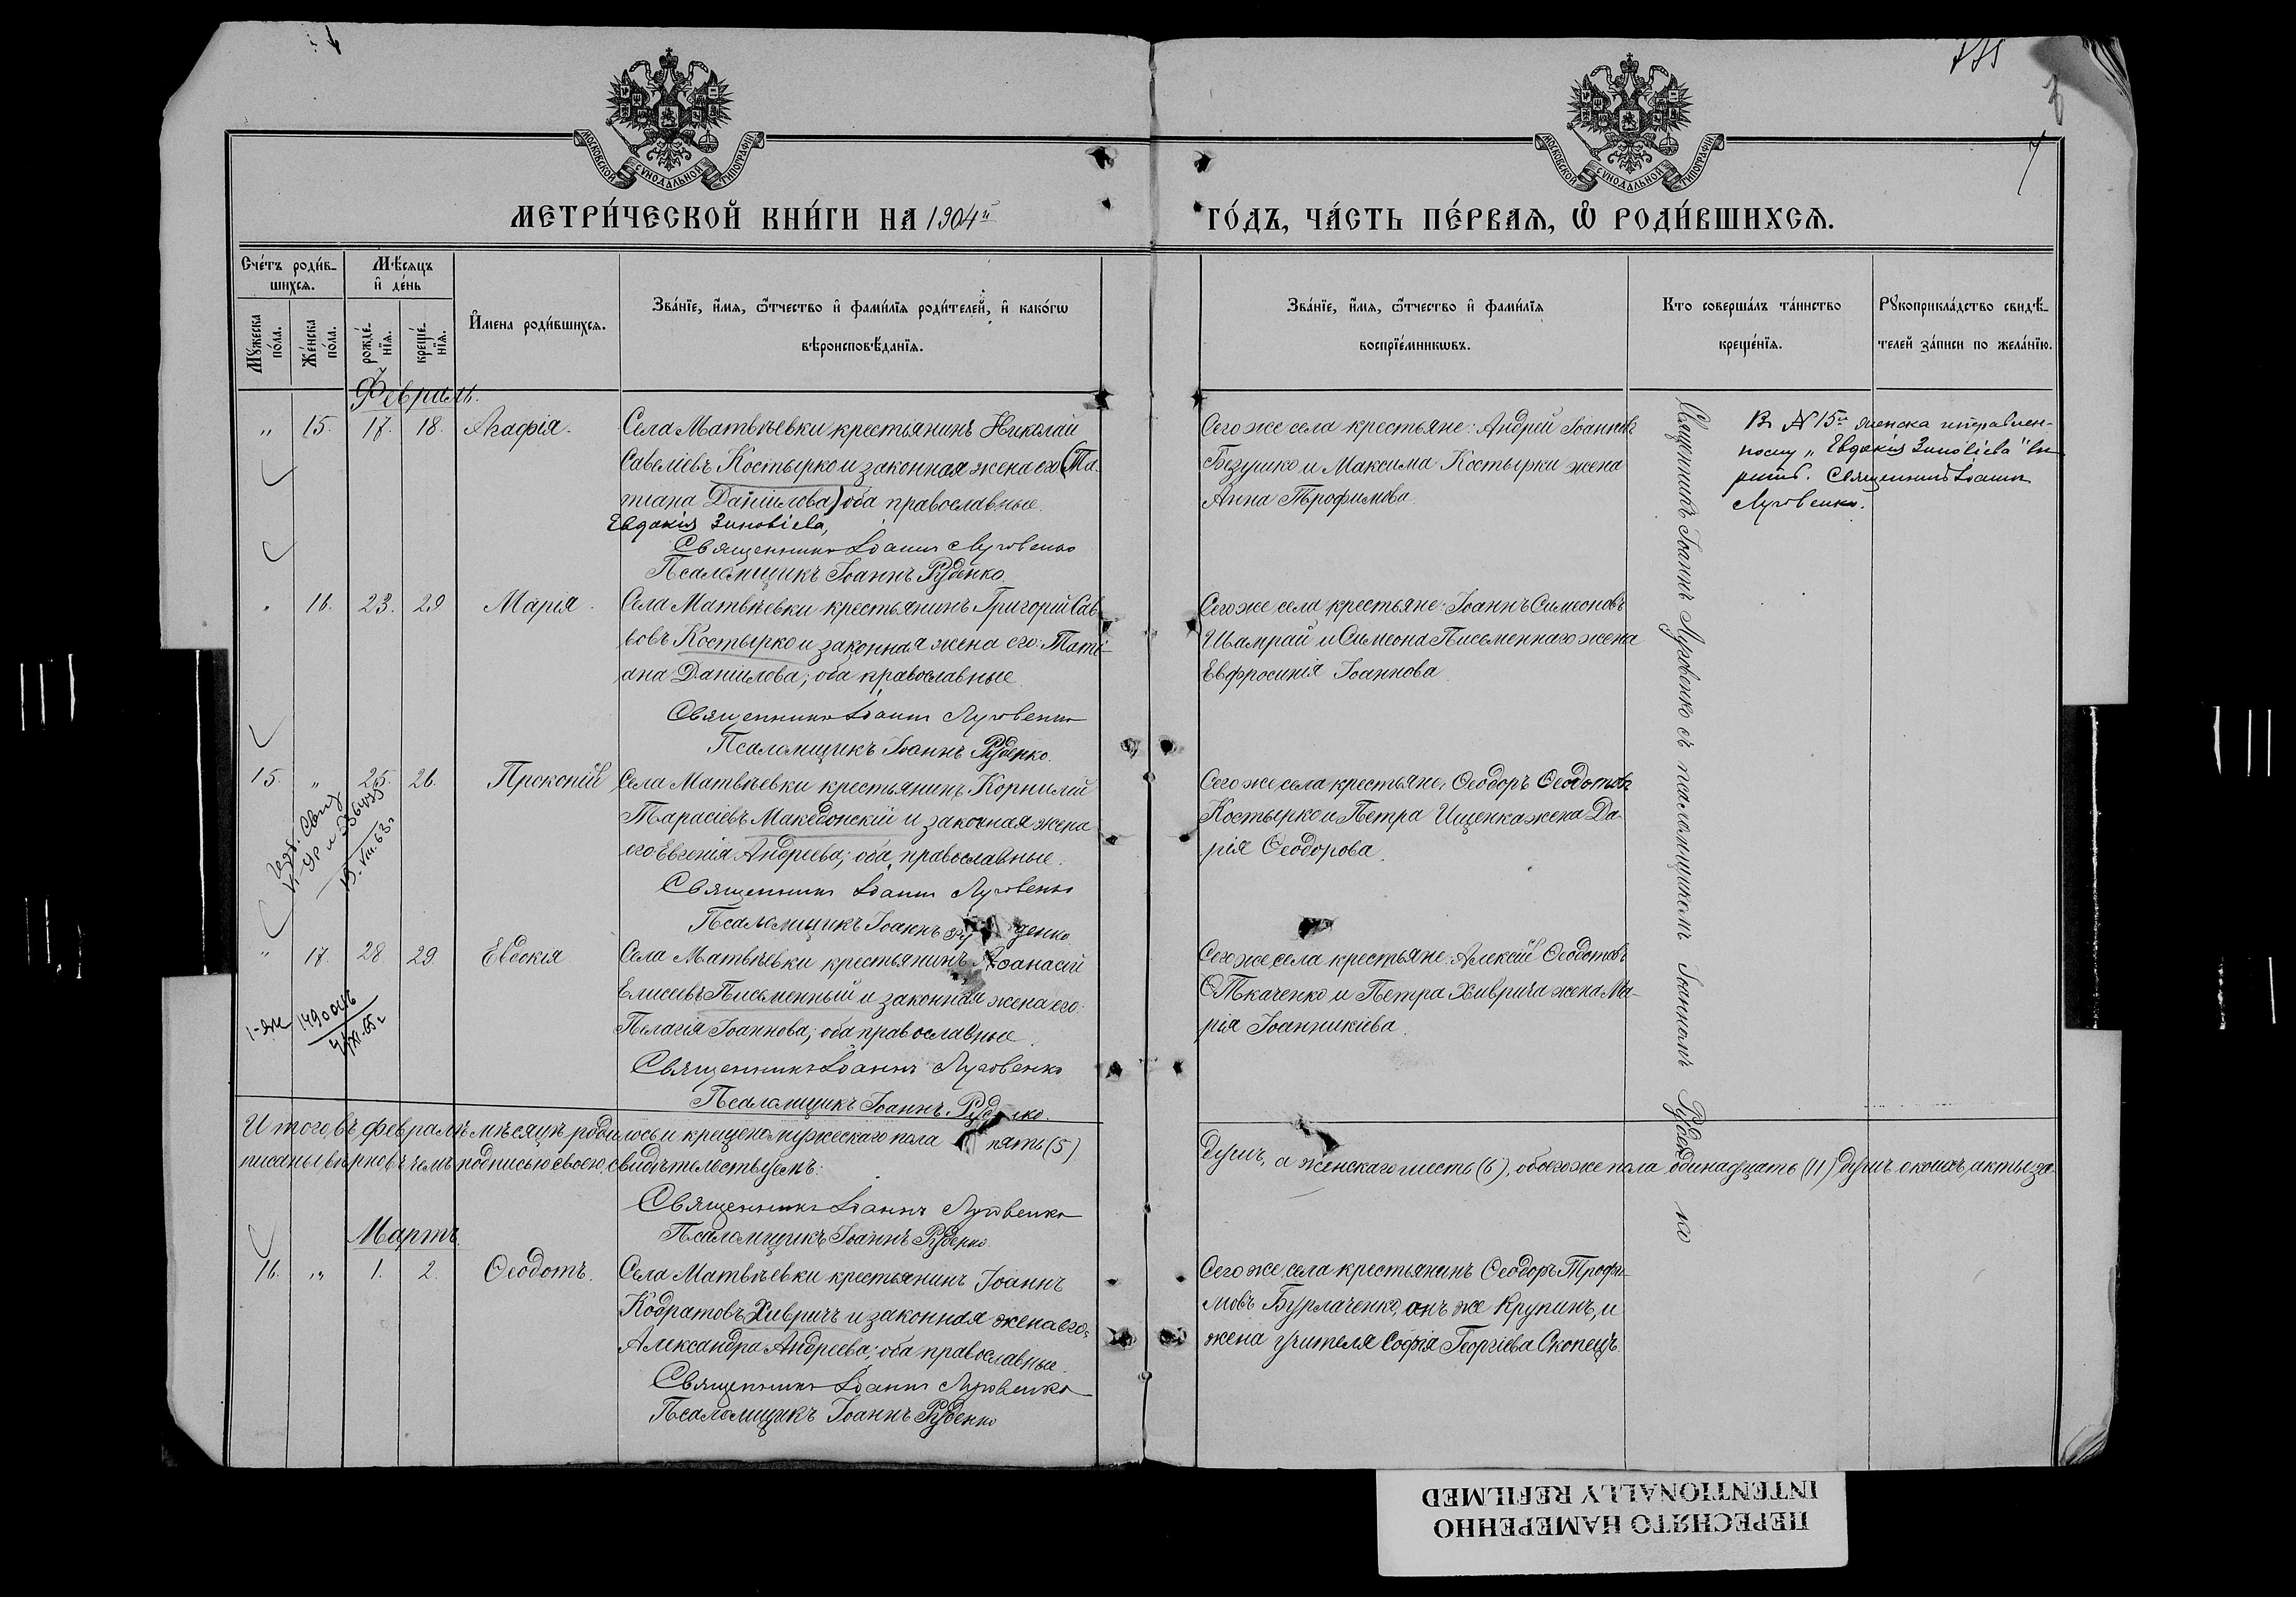 775
7
МОСКОВСКОЙ СУНОДАЛЬНОЙ ТИПОГРАФІИ
МОСКОВСКОЙ СУНОДАЛЬНОЙ ТИПОГРАФІИ
МЕТРИ́ЧЕСКОЙ КНИ́ГИ НА 1904й
ГО́ДЪ, ЧА́СТЬ ПЕ́РВАѦ, Ѡ҆ РОДИ́ВШИХСѦ.
Сче́тъ роди́в-
шихсѧ.
Мѣ́сяцъ
и҆ де́нь
Мꙋ́жеска
по́ла.
Же́нска
по́ла.
рожде́-
нїѧ.
креще́-
нїѧ.
И҆мена роди́вшихсѧ.
Зва́нїе, и҆́мѧ, ѻ҆́тчество и҆ фами́лїѧ роди́телей, и҆ како́гѡ
вѣроисповѣ́данїѧ.
Зва́нїе, и҆́мѧ, ѻ҆́тчество и҆ фами́лїѧ
воспрїе́мникѡвъ.
Кто соверша́лъ та́инство
креще́нїѧ.
Рꙋкоприкла́дство свидѣ́-
телей за́писи по жела́нїю.
Февраль.
" 15. 17. 18. Агафія.
Села Матвѣевки крестьянинъ Николай
Савеліевъ Костырко и законная жена его (Та-
тіана Даніилова) оба православные.
Евдокія Зиновіева,
Священникъ Іоаннъ Луговенко
Псаломщикъ Іоаннъ Руденко.
Сего же села крестьяне: Андрей Іоанновъ
Безушко и Максима Костырки жена
Анна Трофимова.
Въ № 15й женска исправлен-
ному "Евдокія Зиновіева" вѣ-
рить. Священникъ Іоаннъ
Луговенко.
Священникъ Іоаннъ Луговенко съ псаломщикомъ Іоанномъ Руденко
" 16. 23. 29 Марія.
Села Матвѣевки крестьянинъ Григорій Сав-
вовъ Костырко и законная жена его: Таті-
ана Даніилова; оба православные.
Священникъ Іоаннъ Луговенко
Псаломщикъ Іоаннъ Руденко.
Сего же села крестьяне: Іоаннъ Симеоновъ
Шамрай и Симеона Письменнаго жена
Евфросинія Іоаннова.
15. " 25. 26. Прокопій
Села Матвѣевки крестьянинъ Корнилій
Тарасіевъ Македонскій и законная жена
его Евгенія Андреева; оба православные.
Священникъ Іоаннъ Луговенко
Псаломщикъ Іоаннъ Руденко.
Сего же села крестьяне: Ѳеодоръ Ѳеодотовъ
Костырко и Петра Ищенка жена Да-
рія Ѳеодорова.
15.VIII.63г
" 17. 28 29. Евдокія
Села Матвѣевки крестьянинъ Аѳанасій
Елисеевъ Письменный и законная жена его:
Пелагія Іоаннова; оба православные.
Священникъ Іоаннъ Луговенко
Псаломщикъ Іоаннъ Руденко.
Сего же села крестьяне: Алексій Ѳеодотовъ
Ткаченко и Петра Хиврича жена Ма-
рія Іоанникіева.
Итого, въ февралѣ мѣсяцѣ родилось и крещено мужескаго пола пять (5)
душъ, а женскаго шесть (6), обоего же пола одинадцать (11) душъ о коихъ акты за-
писаны вѣрно въ чемъ подписью своею свидѣтельствуемъ:
Священникъ Іоаннъ Луговенко
Псаломщикъ Іоаннъ Руденко.
Мартъ.
16. " 1. 2. Ѳеодотъ.
Села Матвѣевки крестьянинъ Іоаннъ
Кодратовъ Хивричъ и законная жена его:
Александра Андреева; оба православные.
Священникъ Іоаннъ Луговенко
Псаломщикъ Іоаннъ Руденко
Сего же села крестьянинъ Ѳеодоръ Трофи-
мовъ Бурлаченко, онъ же Крупинъ, и
жена учителя Софія Георгіева Скопецъ.
ПЕРЕСНЯТО НАМЕРЕННО
INTENTIONALLY REFILMED